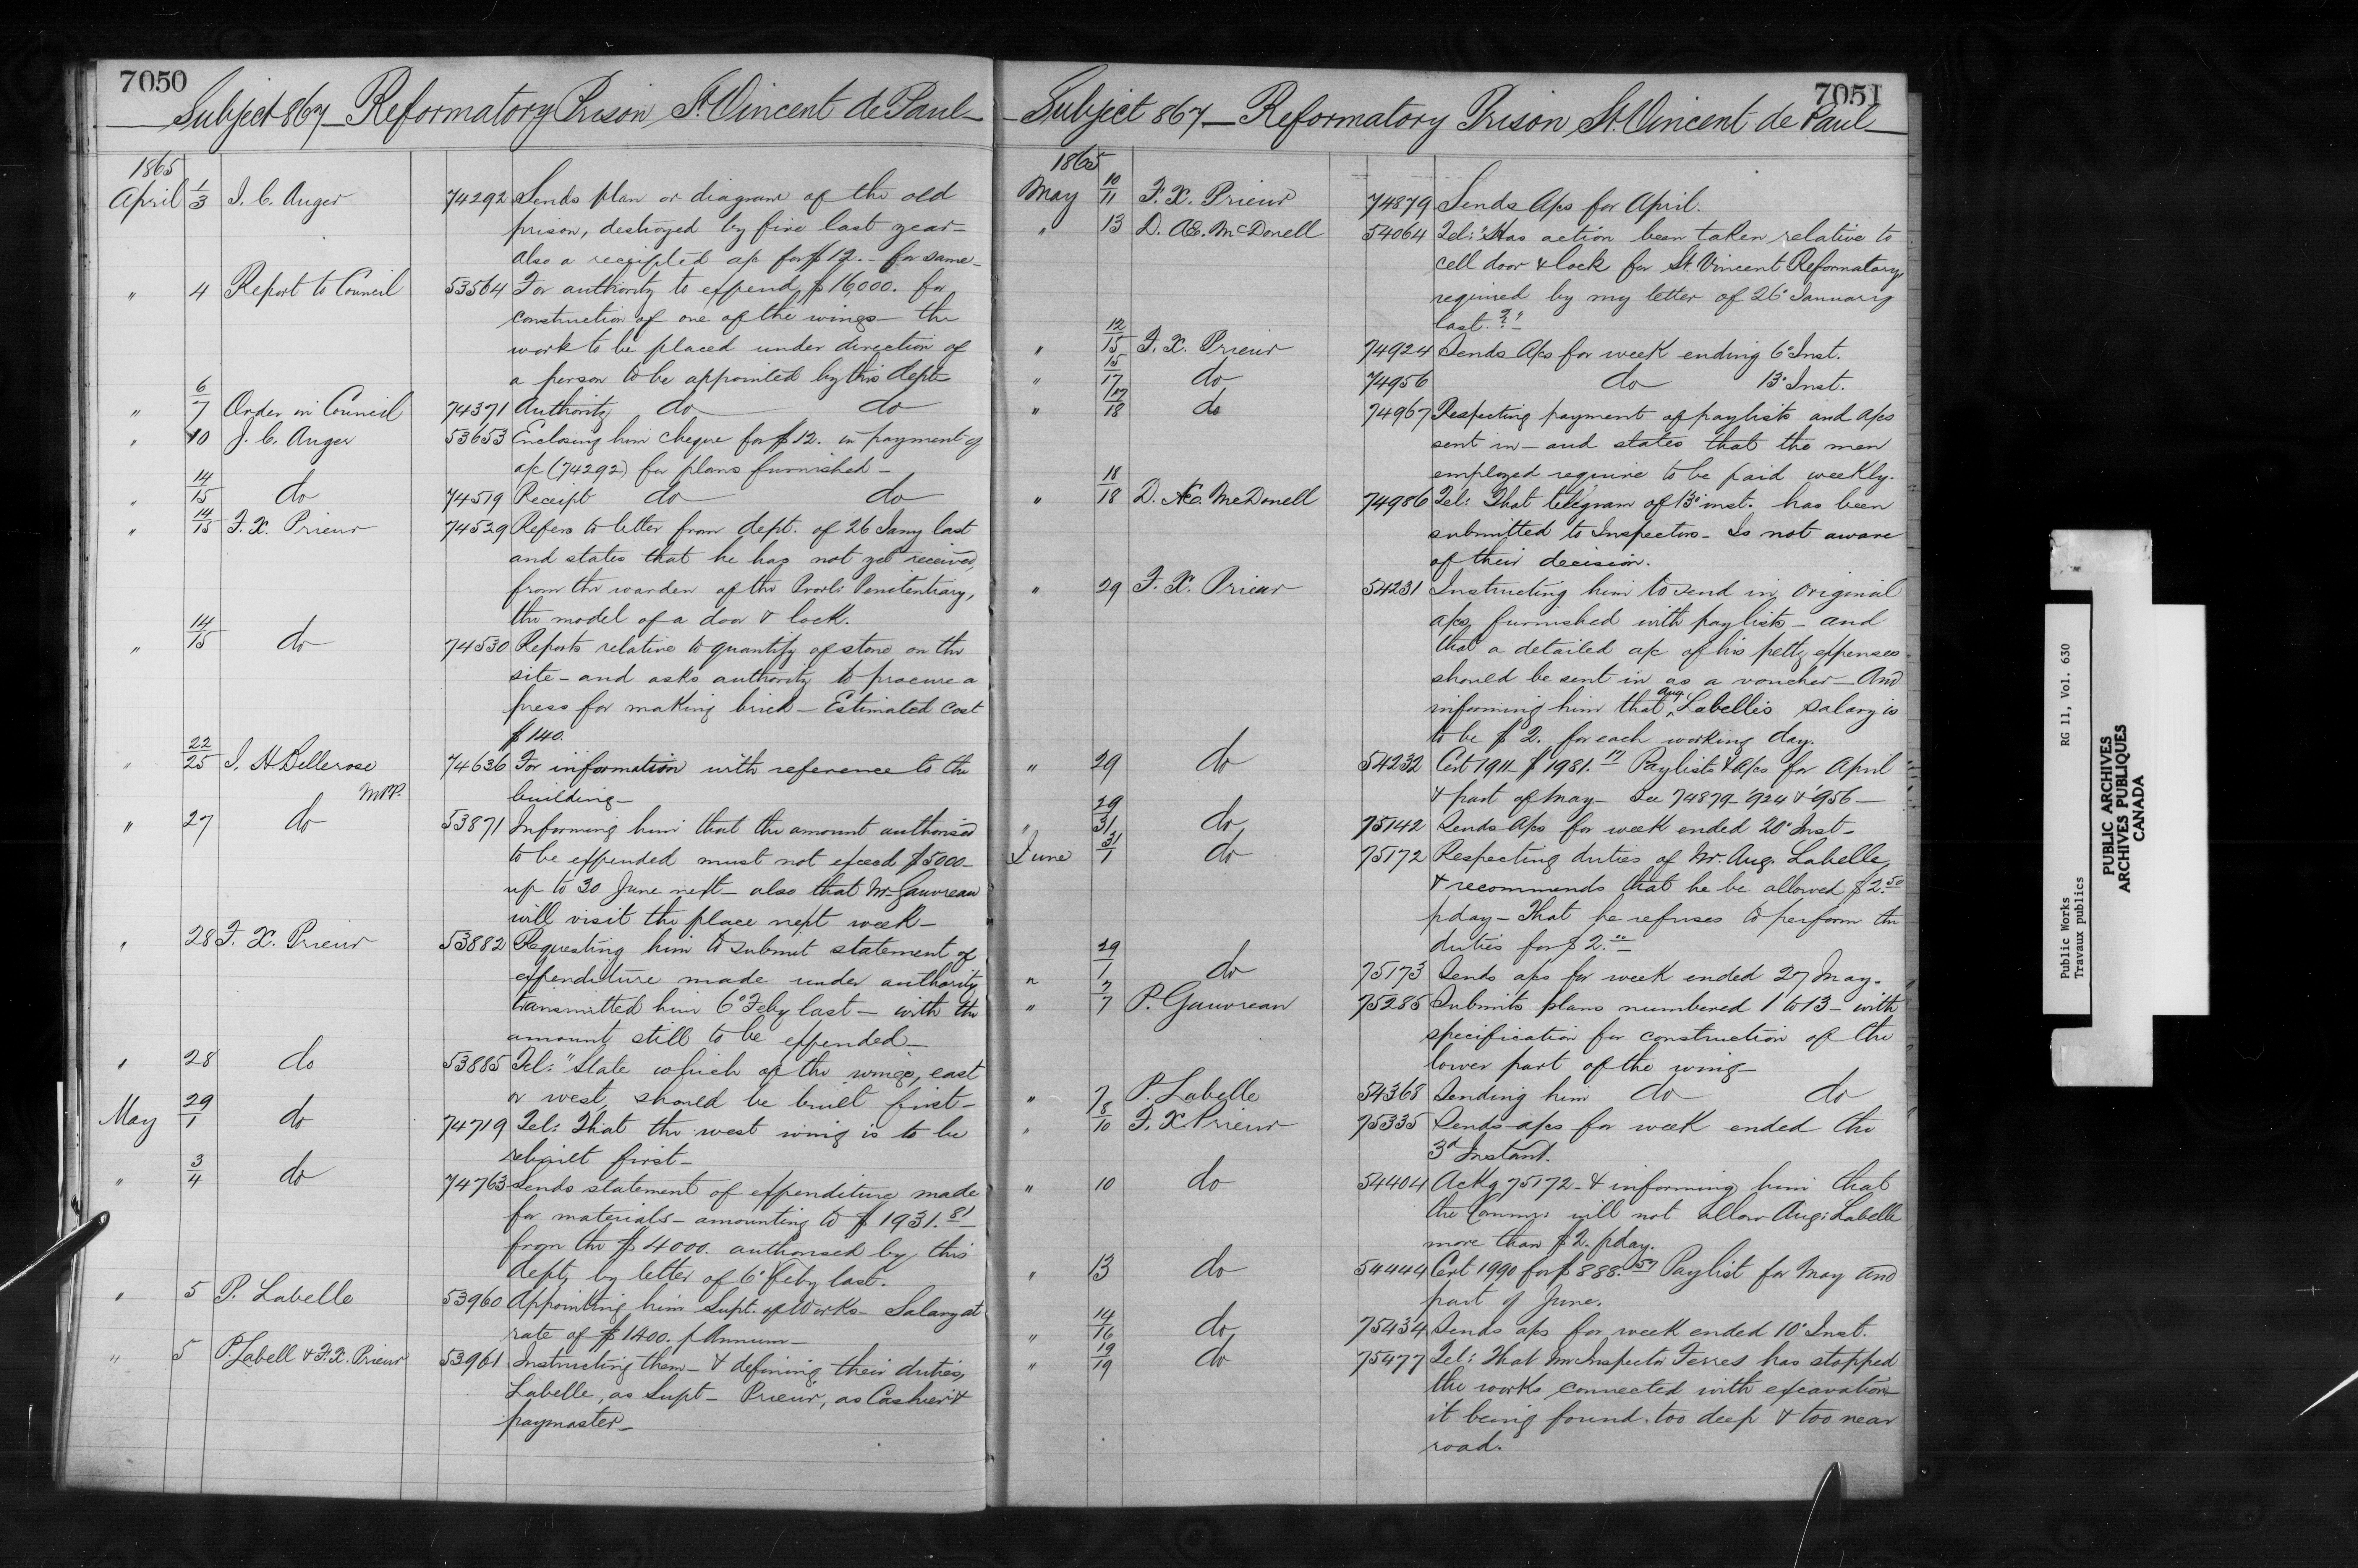 7050
Subject 867 — Reformatory Prison St. Vincent de Paul —
1865
April 1/3 J. C. Auger 74292 Sends plan or diagram of the old
prison, destroyed by fire last year —
also a receipted a/c for $12. — for same —
" 4 Report to Council 53564 For authority to expend $16,000. for
construction of one of the wings — the
work to be placed under direction of
a person to be appointed by this dept —
" 6/7 Order in Council 74371 Authority do do
" 10 J. C. Auger 53653 Enclosing him cheque for $12. in payment of
a/c (74292) for plans furnished —
" 14/15 do 74519 Receipt do do
" 14/15 F. X. Prieur 74529 Refers to letter from dept. of 26 Jany last
and states that he has not yet received,
from the warden of the Provl: Penitentiary,
the model of a door & lock.
" 14/15 do 74530 Reports relative to quantity of stone on the
site — and asks authority to procure a
press for making brick — Estimated cost
$140.
" 22/25 J. H Bellerose 74636 For information with reference to the
M.P.P. building —
" 27 do 53871 Informing him that the amount authorised
to be expended must not exceed $5000 —
up to 30 June next — also that Mr. Gauvreau
will visit the place next week —
" 28 F. X. Prieur 53882 Requesting him to submit statement of
expenditure made under authority
transmitted him 6° Feby last — with the
amount still to be expended —
" 28 do 53885 Tel: "State which of the wings, east
or west, should be built first —
May 29/1 do 74719 Tel: That the west wing is to be
rebuilt first —
" 3/4 do 74763 Sends statement of expenditure made
for materials — amounting to $1931.81
from the $4000. authorised by this
dept, by letter of 6° Feby last.
" 5 P. Labelle 53960 Appointing him Supt. of Works — Salary at
rate of $1400. p Annum —
" 5 P. Labell & F. X. Prieur 53961 Instructing them — & defining their duties,
Labelle, as Supt — Prieur, as Cashier &
paymaster —
7051
Subject 867 — Reformatory Prison St. Vincent de Paul —
1865
May 10/11 F. X. Prieur 74879 Sends A/cs for April.
" 13 D. Æ. McDonell 54064 Tel: "Has action been taken relative to
cell door & lock for St. Vincent Reformatory,
required by my letter of 26° January
last.?" —
" 12/15 F. X. Prieur 74924 Sends A/cs for week ending 6° Inst.
" 15/17 do 74956 do 13° Inst.
" 17/18 do 74967 Respecting payment of paylists and a/cs
sent in — and states that the men
employed require to be paid weekly.
" 18/18 D. Æ. McDonell 74986 Tel: That telegram of 13° inst. has been
submitted to Inspectors — Is not aware
of their decision.
" 29 F. X. Prieur 54231 Instructing him to send in original
a/cs, furnished with paylists — and
that a detailed a/c of his petty expenses
should be sent in as a voucher — And
informing him that Aug. Labelle's salary is
to be $2. for each working day.
" 29 do 54232 Cert 1911 — $1981.17 Paylists & a/cs for April
& part of May — See 74879 — '924 & '956 —
" 29/31 do 75142 Sends A/cs for week ended 20° Inst —
June 31/1 do 75172 Respecting duties of Mr. Aug. Labelle,
& recommends that he be allowed $2.50
p day — That he refuses to perform the
duties for $2.00
" 29/1 do 75173 Sends a/cs for week ended 27 May.
" 7/7 P. Gauvreau 75285 Submits plans numbered 1 to 13 — with
specification for construction of the
lower part of the wing —
" 7 P. Labelle 54368 Sending him do do
" 8/10 F. X Prieur 75335 Sends a/cs for week ended the
3d Instant.
" 10 do 54404 Ackg 75172 — & informing him that
the Commr: will not allow Aug: Labelle
more than $2. p day.
" 13 do 54444 Cert 1990 for $888.57 Paylist for May and
part of June.
" 14/16 do 75434 Sends a/cs for week ended 10° Inst.
" 19/19 do 75477 Tel: That Mr Inspector Ferres has stopped
the works connected with excavation —
it being found too deep & too near
road.
Public Works RG 11, Vol. 630
Travaux publics
PUBLIC ARCHIVES
ARCHIVES PUBLIQUES
CANADA